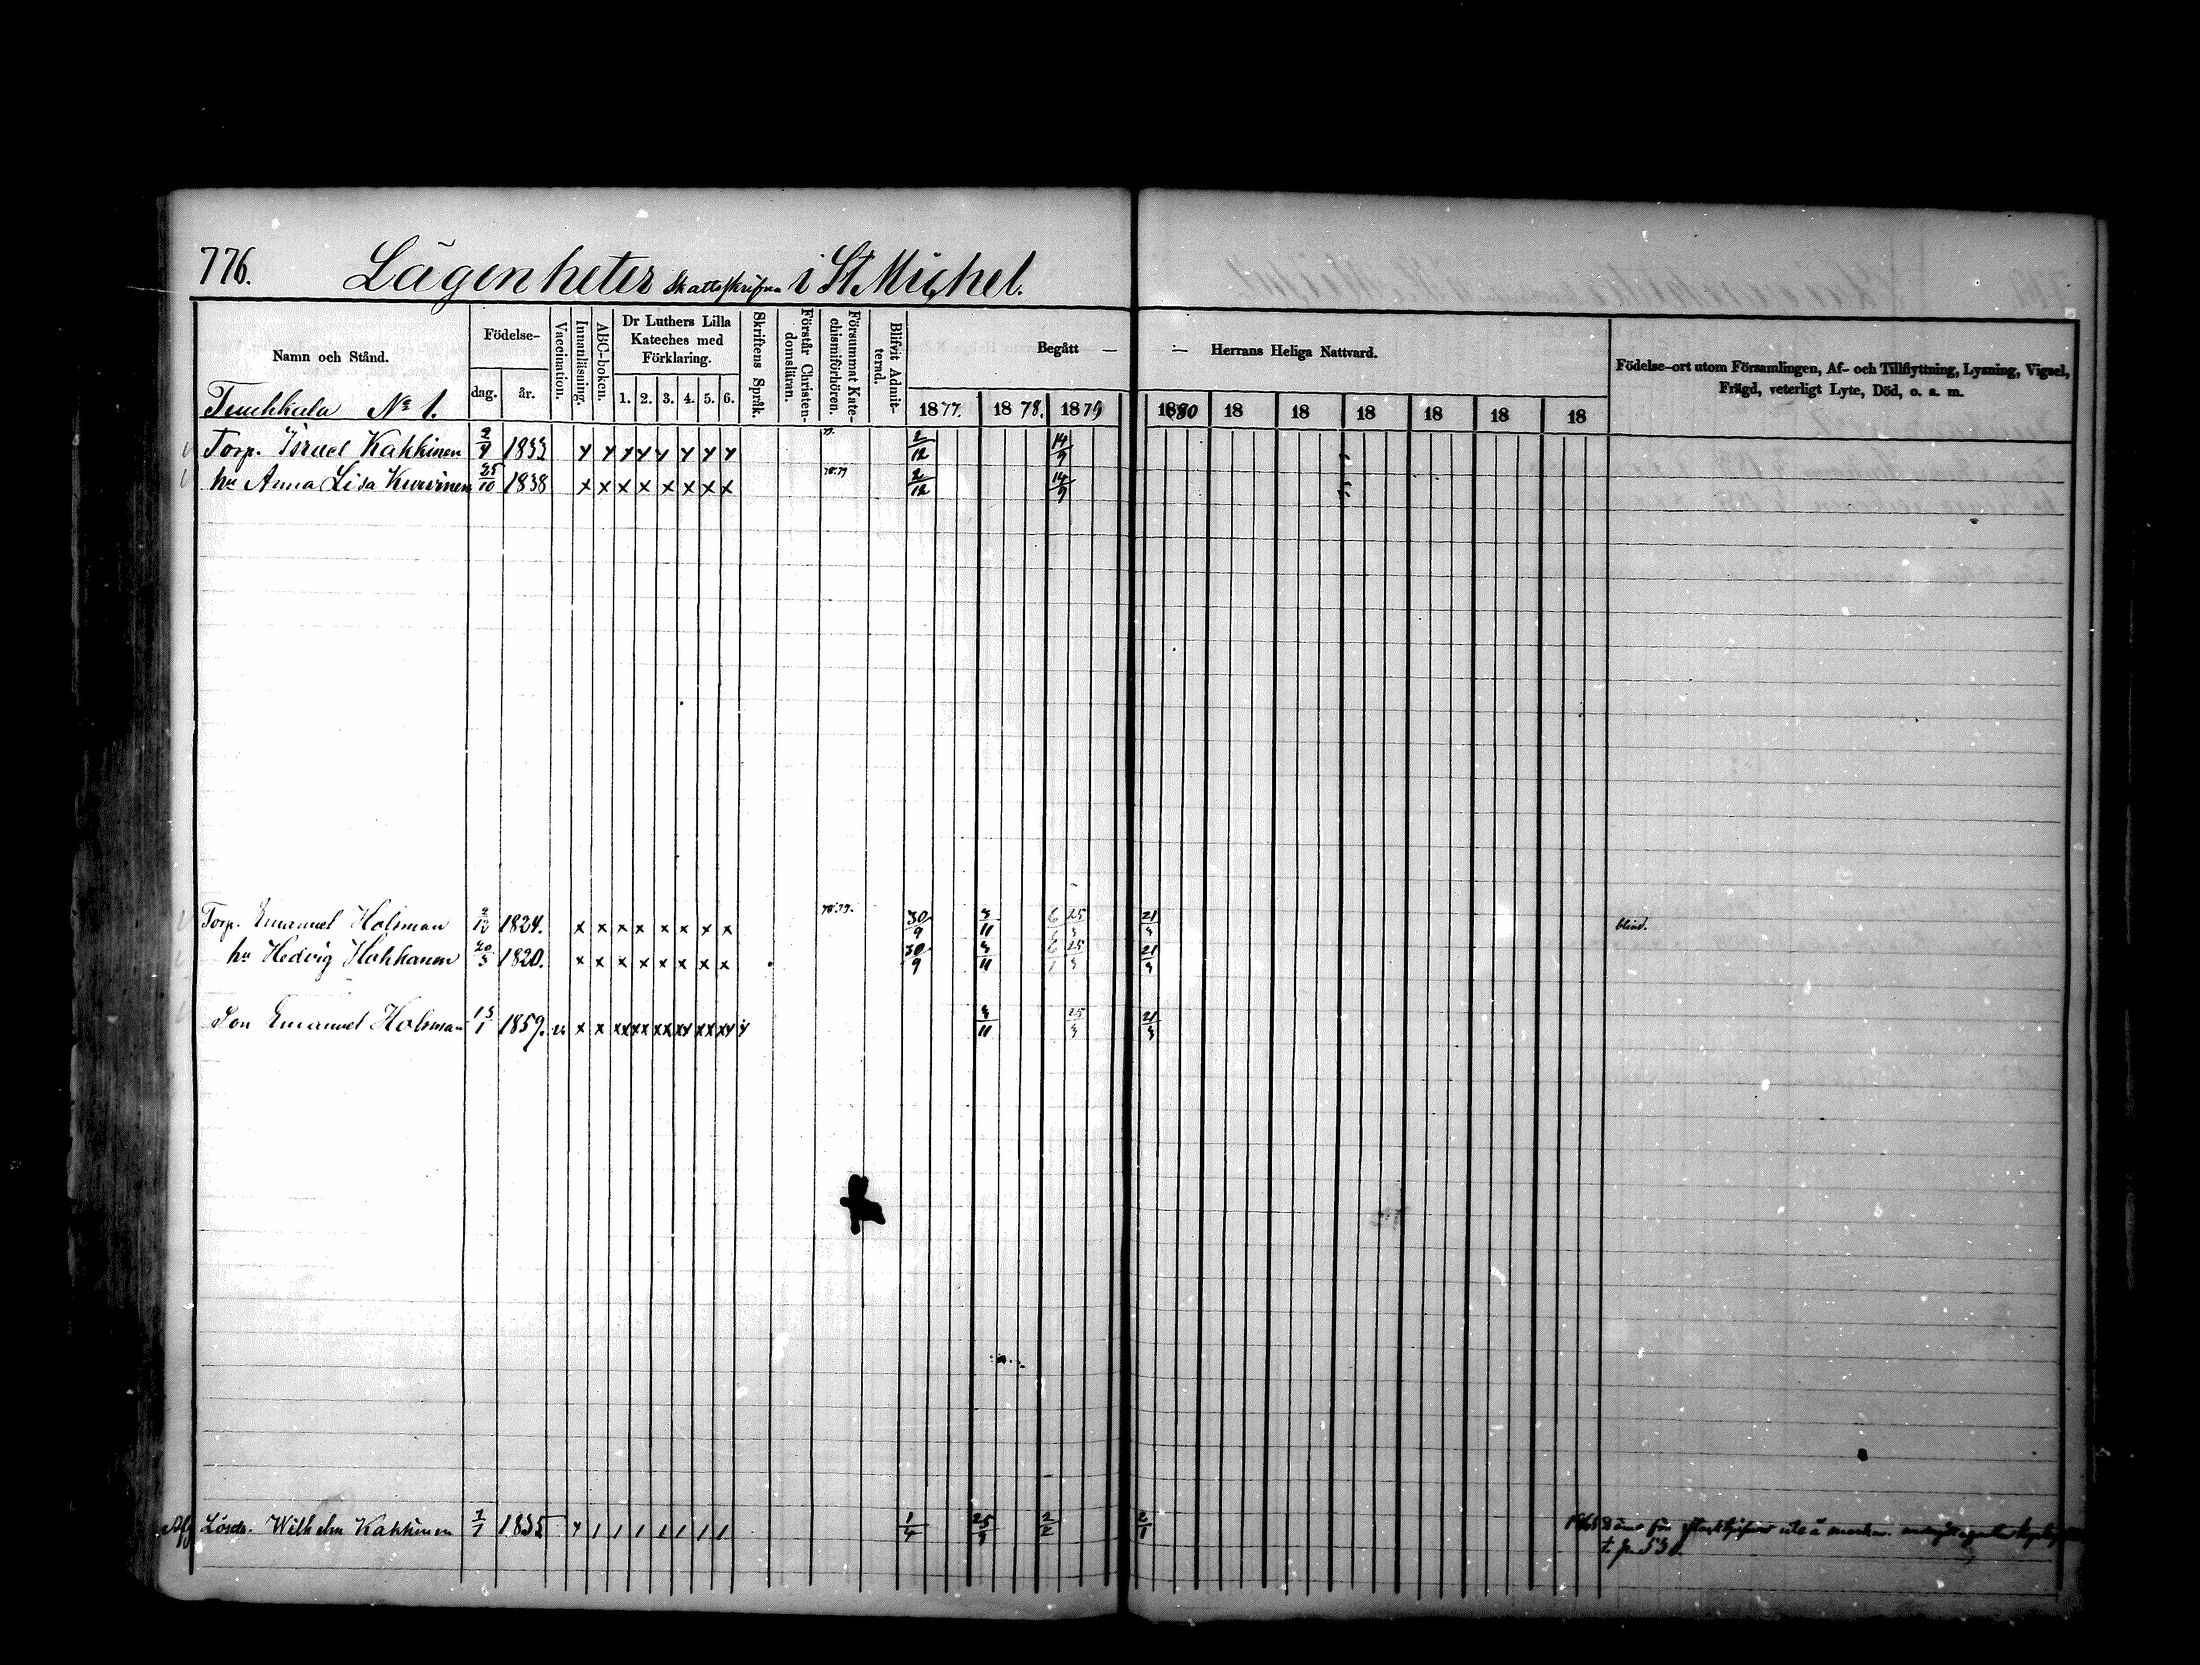 776.
Lägenheter Skattskrifna i St Michel.
Namn och Stånd.
Födelse-
dag.
år.
Vaccination.
Innanläsning.
ABC-boken.
Dr Luthers Lilla
Kateches med
Förklaring.
1. 2. 3. 4. 5. 6.
Skriftens Språk.
Förstår Christen-
domsläran.
Försummat Kate-
chismiförhören.
Blifvit Admit-
terad.
Begått — — Herrans Heliga Nattvard.
1877. 1878. 1879 1880 18 18 18 18 18 18
Födelse-ort utom Församlingen, Af- och Tillflyttning, Lysning, Vigsel,
Frägd, veterligt Lyte, Död, o. a. m.
No 1.
Torp. Israel Kakkinen 2/4 1833 x x x x x x x x 77. 2/12 14/9
hu Anna Lisa Kurvinen 25/10 1838 x x x x x x x x 78.79 2/12 14/9
Torp. Emanuel Holsman 2/12 1824. x x x x x x x x 78.79. 30/9 3/11 25/3 21/3 blind.
hu Hedvig Hokkanen 20/3 1820. x x x x x x x x 30/9 3/11 25/3 21/3
Son Emanuel Holsman 13/1 1859. v x x xx xx xx xx xx xx 3/11 25/3 21/3
Lösdr. Wilhelm Kakkinen 1/1 1835 1/4 25/3 2/2 2/1
t. p. 530.